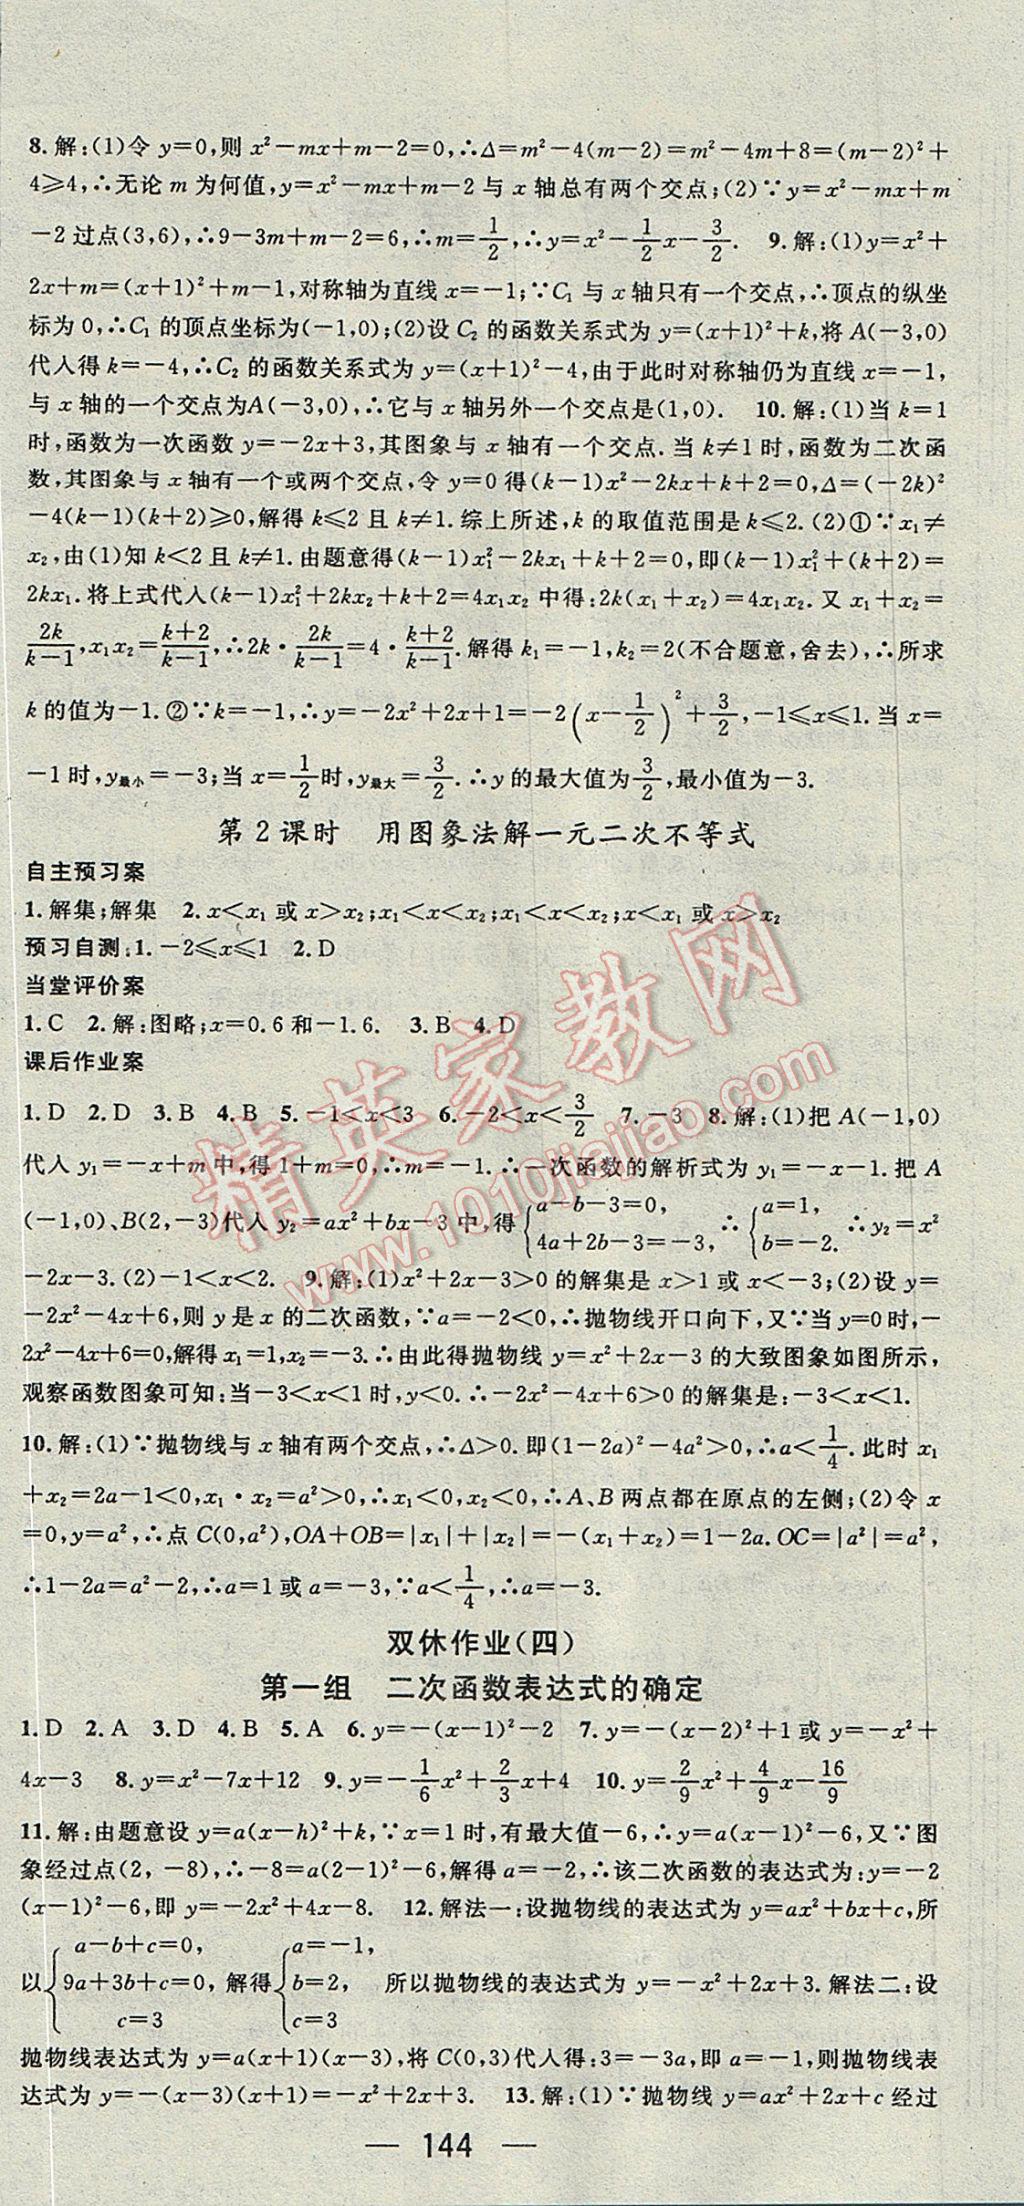 8.解:(1)令 y=0,则 x²-mx+m-2=0,∴Δ=m²-4(m-2)=m²-4m+8=(m-2)²+
4≥4,∴无论 m 为何值,y=x²-mx+m-2 与 x 轴总有两个交点;(2)∵y=x²-mx+m
-2 过点(3,6),∴9-3m+m-2=6,∴m=1/2,∴y=x²-1/2x-3/2. 9.解:(1)y=x²+
2x+m=(x+1)²+m-1,对称轴为直线 x=-1;∵C₁ 与 x 轴只有一个交点,∴顶点的纵坐
标为 0,∴C₁ 的顶点坐标为(-1,0);(2)设 C₂ 的函数关系式为 y=(x+1)²+k,将 A(-3,0)
代入得 k=-4,∴C₂ 的函数关系式为 y=(x+1)²-4,由于此时对称轴仍为直线 x=-1,
与 x 轴的一个交点为A(-3,0),∴它与 x 轴另外一个交点是(1,0). 10.解:(1)当 k=1
时,函数为一次函数 y=-2x+3,其图象与 x 轴有一个交点.当 k≠1 时,函数为二次函
数,其图象与 x 轴有一个或两个交点,令 y=0 得(k-1)x²-2kx+k+2=0,Δ=(-2k)²
-4(k-1)(k+2)≥0,解得 k≤2 且 k≠1.综上所述,k 的取值范围是 k≤2.(2)①∵x₁≠
x₂,由(1)知 k<2 且 k≠1.由题意得(k-1)x₁²-2kx₁+k+2=0,即(k-1)x₁²+(k+2)=
2kx₁.将上式代入(k-1)x₁²+2kx₂+k+2=4x₁x₂ 中得:2k(x₁+x₂)=4x₁x₂.又 x₁+x₂=
2k/(k-1),x₁x₂=(k+2)/(k-1),∴2k·2k/(k-1)=4·(k+2)/(k-1).解得 k₁=-1,k₂=2(不合题意,舍去),∴所求
k 的值为-1.②∵k=-1,∴y=-2x²+2x+1=-2(x-1/2)²+3/2,-1≤x≤1.当 x=
-1 时,y最小=-3;当 x=1/2时,y最大=3/2.∴y 的最大值为3/2,最小值为-3.
第 2 课时 用图象法解一元二次不等式
自主预习案
1.解集;解集 2.x<x₁ 或 x>x₂;x₁<x<x₂;x₁<x<x₂;x<x₁ 或 x>x₂
预习自测:1.-2≤x≤1 2.D
当堂评价案
1.C 2.解:图略;x=0.6 和-1.6. 3.B 4.D
课后作业案
1.D 2.D 3.B 4.B 5.-1<x<3 6.-2<x<3/2 7.-3 8.解:(1)把 A(-1,0)
代入 y₁=-x+m 中,得 1+m=0,∴m=-1.∴一次函数的解析式为 y₁=-x-1.把 A
(-1,0)、B(2,-3)代入 y₂=ax²+bx-3 中,得{a-b-3=0, 4a+2b-3=-3, ∴{a=1, b=-2. ∴y₂=x²
-2x-3.(2)-1<x<2. 9.解:(1)x²+2x-3>0 的解集是 x>1 或 x<-3;(2)设 y=
-2x²-4x+6,则 y 是 x 的二次函数,∵a=-2<0,∴抛物线开口向下,又∵当 y=0 时,-
2x²-4x+6=0,解得 x₁=1,x₂=-3.∴由此得抛物线 y=x²+2x-3 的大致图象如图所示,
观察函数图象可知:当-3<x<1 时,y<0.∴-2x²-4x+6>0 的解集是:-3<x<1.
10.解:(1)∵抛物线与 x 轴有两个交点,∴Δ>0.即(1-2a)²-4a²>0,∴a<1/4.此时 x₁
+x₂=2a-1<0,x₁·x₂=a²>0,∴x₁<0,x₂<0,∴A、B 两点都在原点的左侧;(2)令 x
=0,y=a²,∴点 C(0,a²),OA+OB=|x₁|+|x₂|=-(x₁+x₂)=1-2a.OC=|a²|=a²,
∴1-2a=a²-2,∴a=1 或 a=-3,∵a<1/4,∴a=-3.
双休作业(四)
第一组 二次函数表达式的确定
1.D 2.A 3.D 4.B 5.A 6.y=-(x-1)²-2 7.y=-(x-2)²+1 或 y=-x²+
4x-3 8.y=x²-7x+12 9.y=-1/6x²+2/3x+4 10.y=2/9x²+4/9x-16/9
11.解:由题意设 y=a(x-h)²+k,∵x=1 时,有最大值-6,∴y=a(x-1)²-6,又∵图
象经过点(2, -8),∴-8=a(2-1)²-6,解得 a=-2,∴该二次函数的表达式为:y=-2
(x-1)²-6,即 y=-2x²+4x-8. 12.解法一:设抛物线的表达式为 y=ax²+bx+c,所
以{a-b+c=0, 9a+3b+c=0, c=3 解得{a=-1, b=2, c=3 所以抛物线的表达式为 y=-x²+2x+3.解法二:设
抛物线表达式为 y=a(x+1)(x-3),将 C(0,3)代入得:3=-3a,即 a=-1,则抛物线表
达式为 y=-(x-3)(x+1)=-x²+2x+3. 13.解:(1)∵抛物线 y=ax²+2x+c 经过
— 144 —
精英家教网
www.1010jiajiao.com